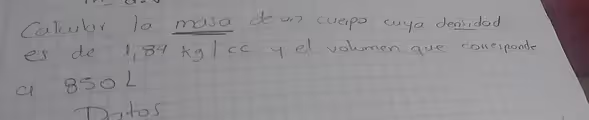 Calcular la masa de un cuerpo cuya densidad
es de 1,84 kg/cc y el volumen que corresponde
a 850 L
Datos